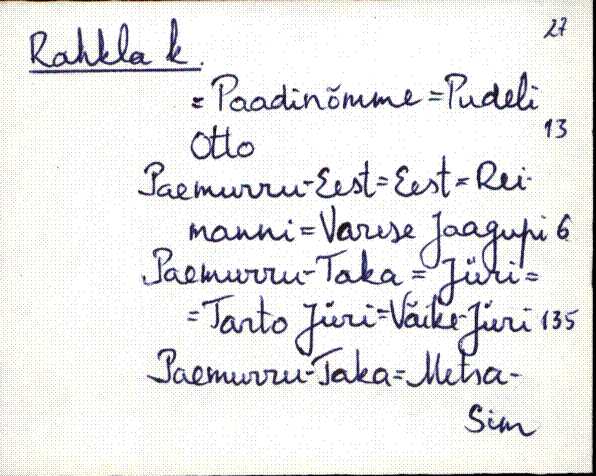 27
Rahkla k.
= Paadinõmme = Pudeli
13
Otto
Paemurru-Eest = Eest = Rei-
manni = Varese Jaagupi 6
Paemurru-Taka = Jüri =
= Tarto Jüri = Väike-Jüri 135
Paemurru-Taka = Metsa-
Sim